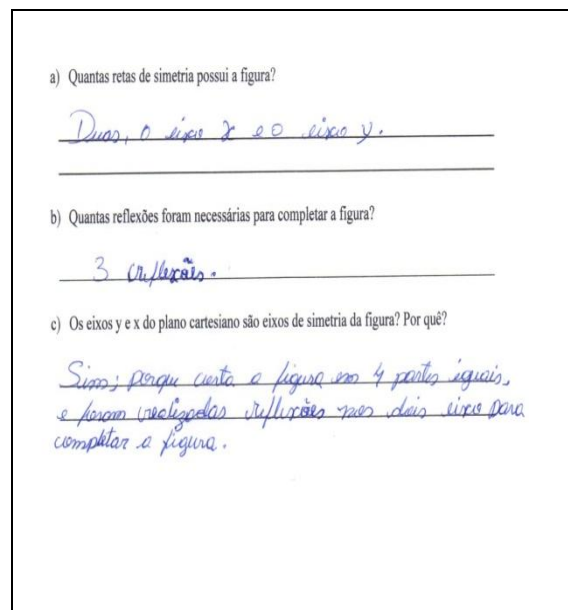 a) Quantas retas de simetria possui a figura?
Duas, o eixo x e o eixo y.
b) Quantas reflexões foram necessárias para completar a figura?
3 reflexões.
c) Os eixos y e x do plano cartesiano são eixos de simetria da figura? Por quê?
Sim; porque corta a figura em 4 partes iguais,
e foram realizadas reflexões nos dois eixo para
completar a figura.